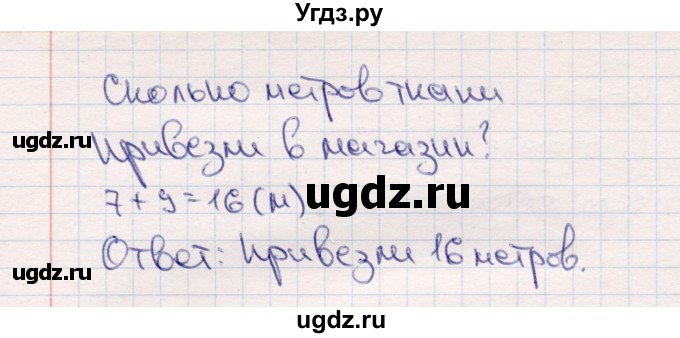 Угдз.ру
Сколько метров ткани
ugdz.ru
привезли в магазин?
ugdz.ru
ugdz.ru
7+9=16(м)
ugdz.ru
Ответ: привезли 16 метров.
ugdz.ru
ugdz.ru